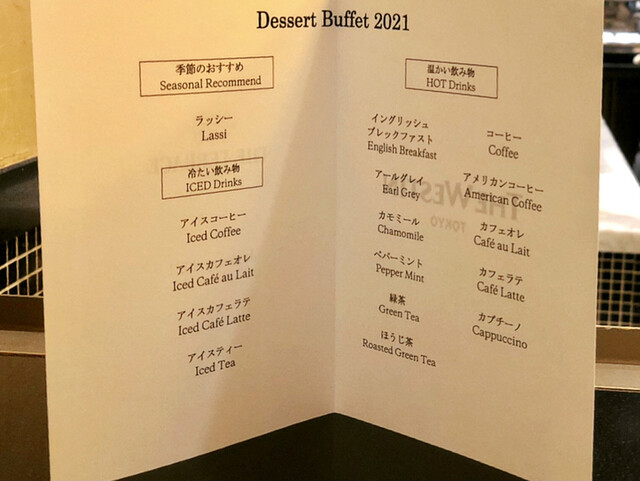 Dessert Buffet 2021
季節のおすすめ
Seasonal Recommend
ラッシー
Lassi
冷たい飲み物
ICED Drinks
アイスコーヒー
Iced Coffee
アイスカフェオレ
Iced Café au Lait
アイスカフェラテ
Iced Café Latte
アイスティー
Iced Tea
温かい飲み物
HOT Drinks
イングリッシュ
ブレックファスト
English Breakfast
アールグレイ
Earl Grey
カモミール
Chamomile
ペパーミント
Pepper Mint
緑茶
Green Tea
ほうじ茶
Roasted Green Tea
コーヒー
Coffee
アメリカンコーヒー
American Coffee
カフェオレ
Café au Lait
カフェラテ
Café Latte
カプチーノ
Cappuccino
THE WESTIN
TOKYO